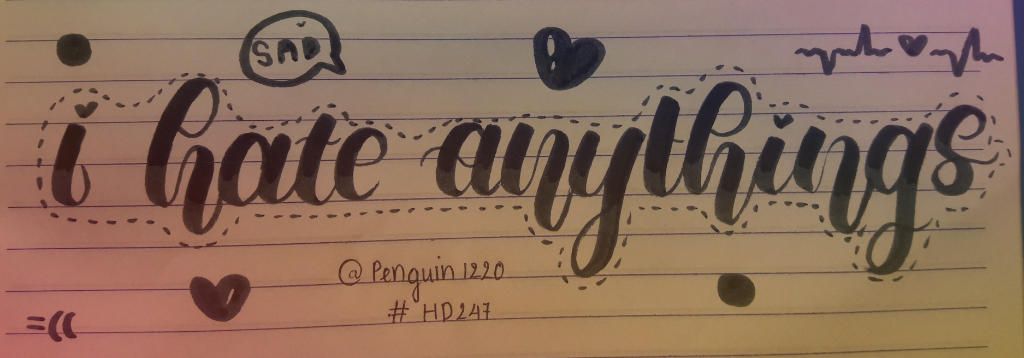 SAD
i hate anythings
@Penguin1220
# HD247
=((